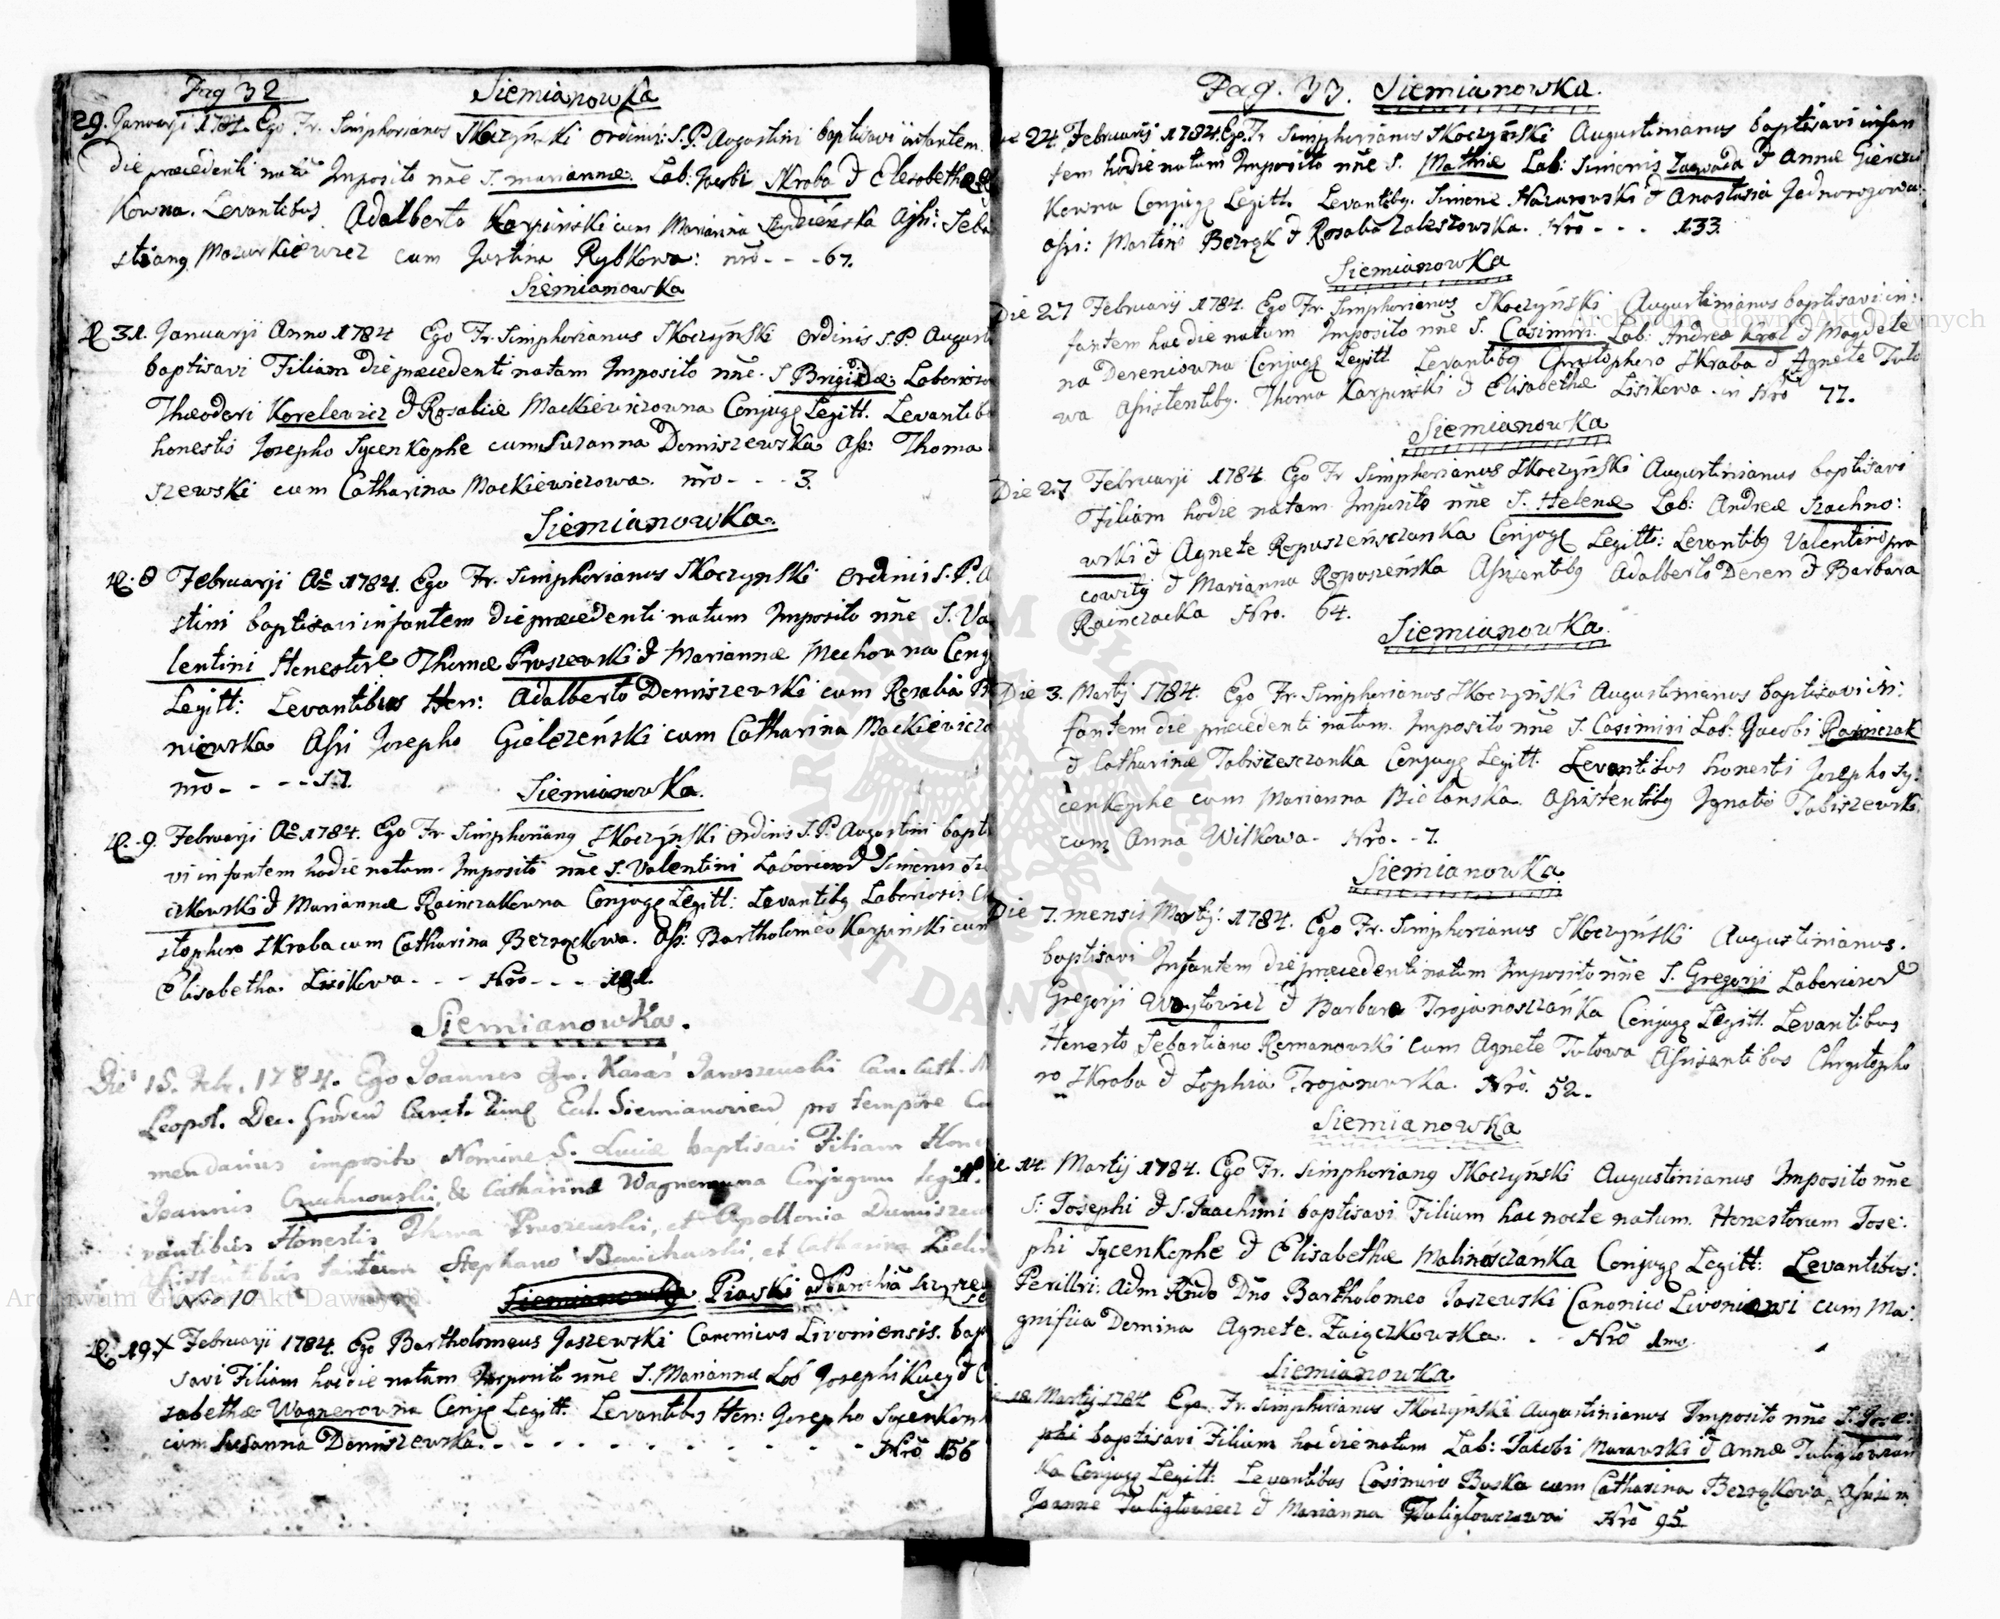 Pag 32 Siemianowka
29. Januarji 1784. Ego Fr. Simphorianus Skoczyński Ordinis S. P. Augustini baptisavi infantem
die præcedenti natã Imposito nñe S. Mariannæ. Lab: Jacobi Skroba & Elisabethæ
Kowna. Levantibus Adalberto Karpinski cum Marianna Assi: Seba
stiang Mazurkiewicz cum Justina Rybkowa: nrõ - - - 67.
Siemianowka
D. 31. Januarji Anno 1784 Ego Fr. Simphorianus Skoczyński Ordinis S. P. August
baptisavi Filiam die præcedenti natam Imposito nñe. S Brigidæ: Laborioso
Theodori Korelevicz & Rosaliæ Mackiewiczowna Conjugę Legitt. Levantib
honestis Josepho Sycenkophe cum Suzanna Domiszewska Ass: Thoma
szewski cum Catharina Mackiewiczowa. nrõ - - - 3.
Siemianowka.
D. 8 Februarji Aõ 1784. Ego Fr. Simphorianus Skoczynski Ordinis S. P. A
stini baptisavi infantem die præcedenti natum Imposito nñe S. Va
lentini Thomæ Pruszewski & Mariannæ Mechowna Conj
Legitt: Levantibus Hon: Adalberto Domiszewski cum Rosalia
niewska Assi Josepho Gielczeński cum Catharina Mackiewiczo
nrõ - - - -
Siemianowka.
D. 9. Februarji Aõ 1784. Ego Fr Simphoriang Skoczyński Ordinis S. P. Augustini bapti
vi infantem hodie natum. Imposito nñe S. Valentini Simonis
czkowski & Mariannæ Rainczakowna Conjugę Legitt: Levantibg Laboriosis
stophero Skroba cum Catharina Bezrąkowa. Ass: Bartholomeo Karpinski cum
Elisabetha Lisikowa - - - Nrõ - - -
Siemianowka.
Die 15. Feb. 1784. Ego Joannes Karaś Jaroszewski Can. Cath.
Leopol. Dec. Curat. Eccl. Siemianovien pro tempore
mendarius imposito Nomine S. Luciæ baptisavi Filiam Hon
Joannis & Catharinæ Wagnerowna Conjugum legitt.
vantibus Honestis Thoma Pruszewski, et Apollonia Dumiszew
Assistentibus Stephano et Catharina
Nro 10
Siemianowka Piaski ad Parochiã
D. 19. Februarji 1784. Ego Bartholomeus Jaszewski Canonicus Livoniensis. bap
savi Filiam hac die natam Imposito nñe S. Mariannæ Lab Josephi Kucy &
sabethæ Wagnerowna Conjg Legitt. Levantibus Hon: Josepho Sycenkop
cum Susanna Domiszewska. - - - - - Nrõ 156
Pag. 33. Siemianowka.
Die 24 Februarij 1784. Ego Fr Simphorianus Skoczyński Augustinianus baptisavi infan
tem hodie natum Imposito nñe S. Mathiæ Lab: Simonis Zawada & Annæ
Kowna Conjugę Legitt. Levantibg. Simone Nazurowski & Anastasia Jednorogowa:
Assi: Martino Bezrąk & Rosalia Zaleszowska. Nrõ - - - 133.
Siemianowka
Die 27 Februarij 1784. Ego Fr. Simphorianus Skoczyński Augustinianus baptisavi in:
fantem hac die natum Imposito nñe S. Casimiri. Lab: Andreæ Krol & Magdale
na Dereniowna Conjugę Legitt Levantibg Christophero Skraba & Agnete Tuto
wa Assistentibg. Thoma Karpinski & Elisabethæ Lisikowa. in Nrõ 77.
Siemianowka
Die 27 Februarji 1784. Ego Fr Simphorianus Skoczyński Augustinianus baptisavi
Filiam hodie natam Imposito nñe S. Helenæ Lab: Andreæ Szachno:
wski & Agnete Ropuszeńsczanka Conjugę Legitt: Levantibg Valentino pra
cowity & Marianna Ropuszeńska Assistentibg Adalberto Deren & Barbara
Rainczacka Nro. 64.
Siemianowka.
Die 3. Martij 1784. Ego Fr. Simphorianus Skoczyński Augustinianus baptisavi in:
fantem die præcedenti natum. Imposito nñe S. Casimiri Lab: Jacobi Rainczak
& Catharinæ Tabiszesczanka Conjugę Legitt. Levantibus honesti Josepho Sy:
cenkophe cum Marianna Bielanska. Assistentibg Ignatio Tabiszewski.
cum Anna Wilkowa. Nrõ. - 7.
Siemianowka.
Die 7. mensis Martij: 1784. Ego Fr. Simphorianus Skoczyński Augustinianus.
baptisavi Infantem die præcedenti natum Imposito nñe S. Gregorji
Gregorji Woytowicz & Barbara Trojanosczańka Conjugę Legitt. Levantibus
Honesto Sebastiano Romanowski cum Agnete Tutowa Assistantibus Chrystopho
ro Skroba & Sophia Trojanowska. Nrõ. 52.
Siemianowka
14. Martij 1784. Ego Fr. Simphoriang Skoczyński Augustinianus Imposito nñe
S: Josephi & S. Joachimi baptisavi Filium hac nocte natum. Honestorum Jose:
phi Sycenkophe & Elisabethæ Malinosczánka Conjugę Legitt: Levantibus:
Perillri: Adm Rndo Dño Bartholomeo Jaszewski Canonico cum Ma:
gnifica Domina Agnete. Zaigczkowska. - - Nrõ 1mo.
Siemianowka.
18 Martij 1784 Ego Fr. Simphorianus Skoczyński Augustinianus Imposito nñe S. Jose:
phi baptisavi Filium hac die natum Lab: Jacobi Murawski & Annæ
ka Conjugę Legitt: Levantibus Casimiro Buska cum Catharina Bezrąkowa,
Joanne Tuliglowicz & Marianna Tuliglowczowa Nrõ 95
Archiwum Główne Akt Dawnych
Archiwum Główne Akt Dawnych
ARCHIWUM GŁÓWNE AKT DAWNYCH